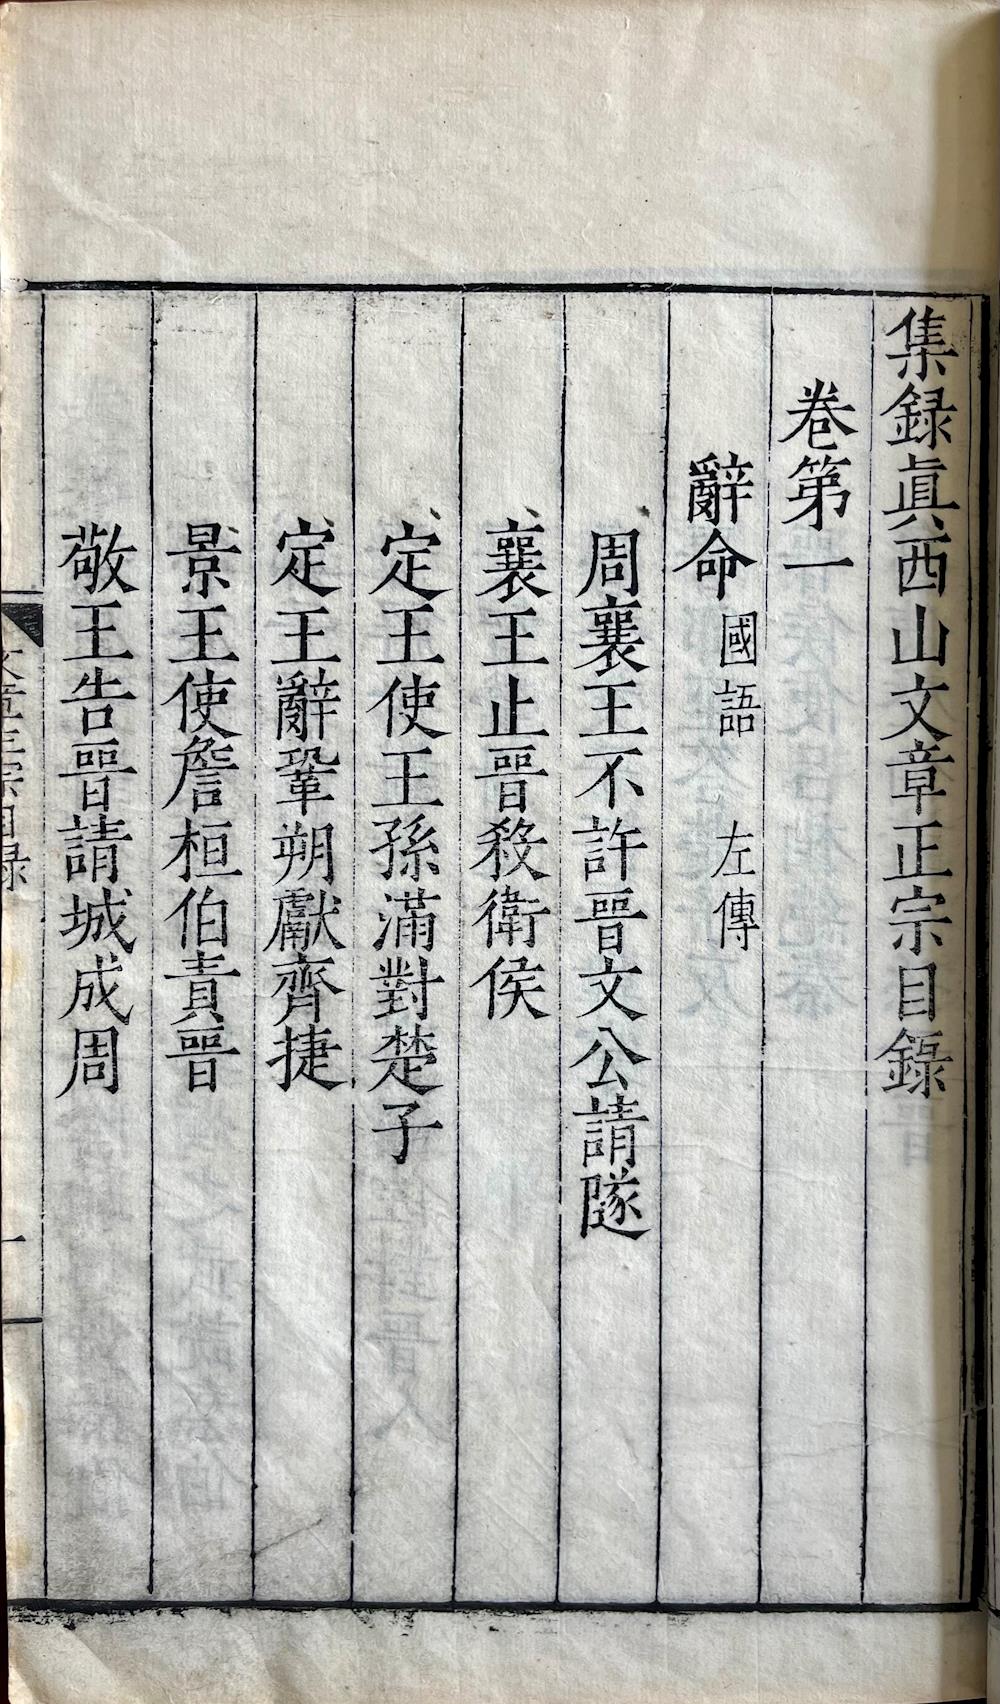 集録眞西山文章正宗目錄
卷第一
辭命 國語 左傳
周襄王不許晉文公請隧
襄王止晉殺衛侯
定王使王孫滿對楚子
定王辭鞏朔獻齊捷
景王使詹桓伯責晉
敬王告晉請城成周
文章正宗目録
一